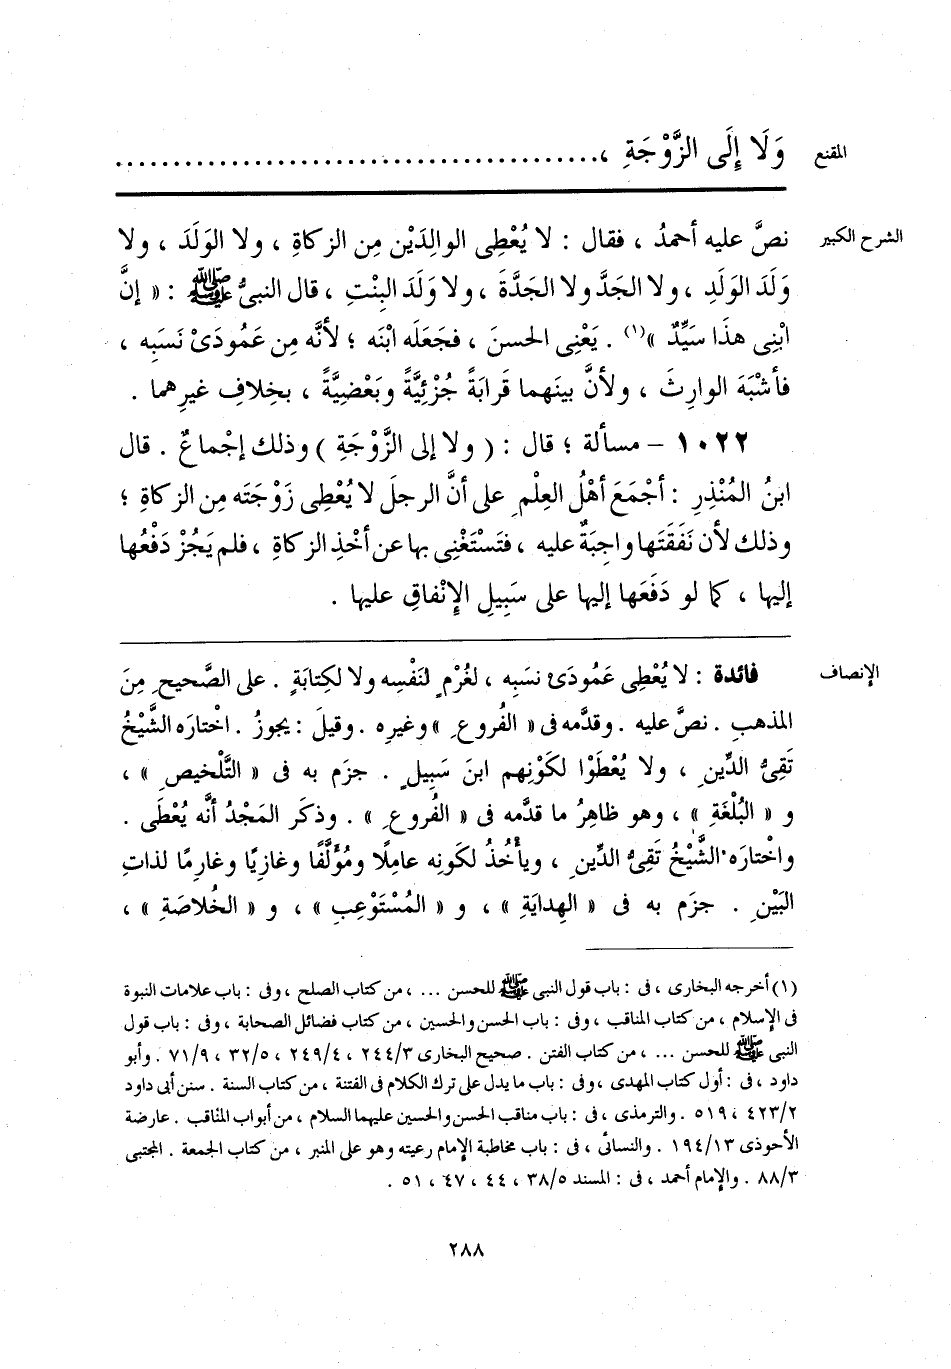 المقنع وَلَا إِلَى الزَّوْجَةِ ، ........................................
الشرح الكبير نصَّ عليه أحمدُ ، فقال : لا يُعْطِى الوالِدَيْن مِن الزكاةِ ، ولا الوَلَدَ ، ولا
وَلَدَ الوَلَدِ ، ولا الجَدَّ ولا الجَدَّةَ ، ولا وَلَدَ البِنْتِ ، قال النبىُّ ﷺ : « إنَّ
ابْنِى هذَا سَيِّدٌ »(١) . يَعْنِى الحسنَ ، فجَعَلَه ابْنَه ؛ لأنَّه مِن عَمُودَىْ نَسَبِه ،
فأشْبَهَ الوارِثَ ، ولأنَّ بينَهما قَرابَةً جُزْئِيَّةً وبَعْضِيَّةً ، بخِلافِ غيرِهما .
١٠٢٢ – مسألة ؛ قال : ( ولا إلى الزَّوْجَةِ ) وذلك إجْماعٌ . قال
ابنُ المُنْذِرِ : أجْمَعَ أهْلُ العِلْمِ على أنَّ الرجلَ لا يُعْطِى زَوْجَتَه مِن الزكاةِ ؛
وذلك لأن نَفَقَتَها واجِبَةٌ عليه ، فتَسْتَغْنِى بها عن أخْذِ الزكاةِ ، فلم يَجُزْ دَفْعُها
إليها ، كما لو دَفَعَها إليها على سَبِيلِ الإنْفاقِ عليها .
الإنصاف فائدة : لا يُعْطِى عَمُودَىْ نسَبِه ، لغُرْمٍ لنَفْسِه ولا لكِتابَةٍ . على الصَّحيحِ مِنَ
المذهبِ . نصَّ عليه . وقدَّمه فى « الفُروعِ » وغيرِه . وقيلَ : يجوزُ . اخْتارَه الشَّيْخُ
تَقِىُّ الدِّينِ ، ولا يُعْطَوْا لكَوْنِهم ابنَ سَبِيلٍ . جزَم به فى « التَّلْخيصِ » ،
و « البُلْغَةِ » ، وهو ظاهِرُ ما قدَّمه فى « الفُروعِ » . وذكَر المَجْدُ أنَّه يُعْطَى .
واخْتارَه الشَّيْخُ تَقِىُّ الدِّينِ ، ويأْخُذُ لكَونِه عامِلًا ومُؤَلَّفًا وغازِيًا وغارِمًا لذاتِ
البَيْنِ . جزَم به فى « الهِدايَةِ » ، و « المُسْتَوْعِبِ » ، و « الخُلاصَةِ » ،
(١) أخرجه البخارى ، فى : باب قول النبى ﷺ للحسن ... ، من كتاب الصلح ، وفى : باب علامات النبوة
فى الإسلام ، من كتاب المناقب ، وفى : باب الحسن والحسين ، من كتاب فضائل الصحابة ، وفى : باب قول
النبى ﷺ للحسن ... ، من كتاب الفتن . صحيح البخارى ٢٤٤/٣ ، ٢٤٩/٤ ، ٣٢/٥ ، ٧١/٩ . وأبو
داود ، فى : أول كتاب المهدى ، وفى : باب ما يدل على ترك الكلام فى الفتنة ، من كتاب السنة . سنن أبى داود
٤٢٣/٢ ، ٥١٩ . والترمذى ، فى : باب مناقب الحسن والحسين عليهما السلام ، من أبواب المناقب . عارضة
الأحوذى ١٩٤/١٣ . والنسائى ، فى : باب مخاطبة الإمام رعيته وهو على المنبر ، من كتاب الجمعة . المجتبى
٨٨/٣ . والإمام أحمد ، فى : المسند ٣٨/٥ ، ٤٤ ، ٤٧ ، ٥١ .
٢٨٨